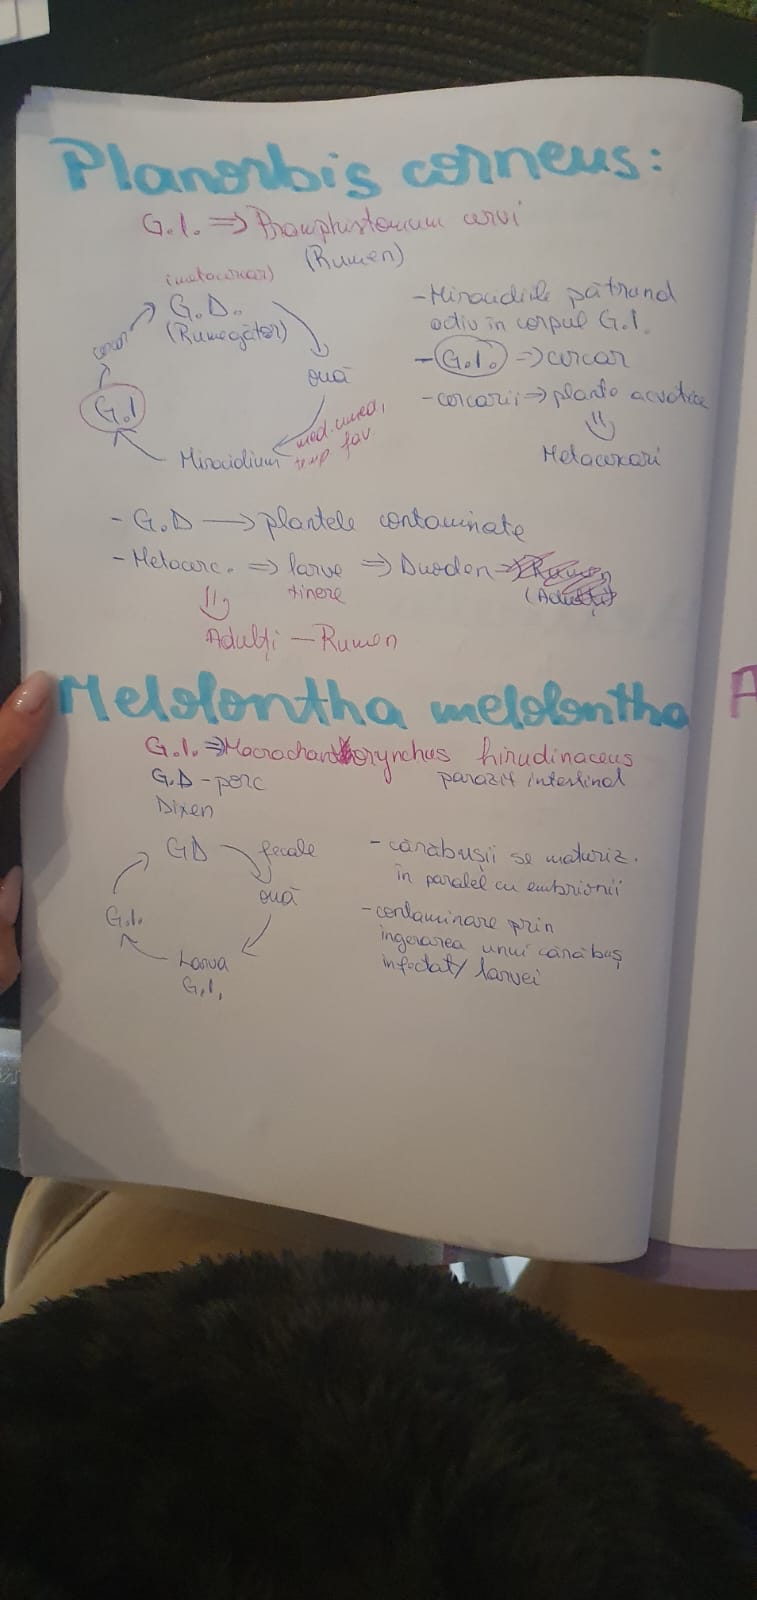 Planorbis corneus:
G.I. => Pramphistomum cervi
(Rumen)
(metacercar)
G.D.
(Rumegător)
cercar
ouă
G.I
med. umed,
temp fav.
Miracidium
- Miracidiile pătrund
activ în corpul G.I.
- G.I. => cercar
- cercarii => plante acvatice
Metacercari
- G.D -> plantele contaminate
- Metacerc. => larve => Duoden =>
tinere
Adulți - Rumen
Melolontha melolontha
G.I. => Macrachanthorynchus hirudinaceus
G.D - porc parazit intestinal
Dixen
GD fecale
ouă
G.I.
Larva
G.I.
- cărăbușii se maturiz.
în paralel cu embrionii
- contaminare prin
ingerarea unui cărăbuș
infectat / larvei
A